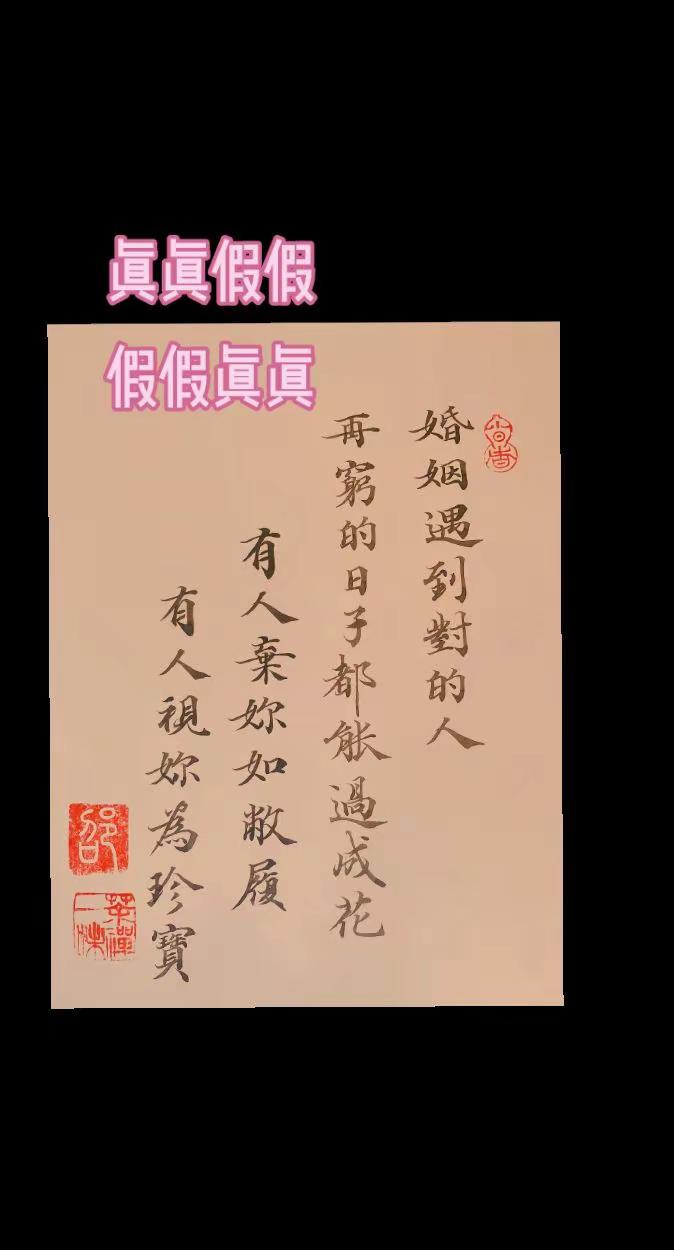 眞眞假假
假假眞眞
婚姻遇到對的人
再窮的日子都能過成花
有人棄妳如敝履
有人視妳為珍寶
邵